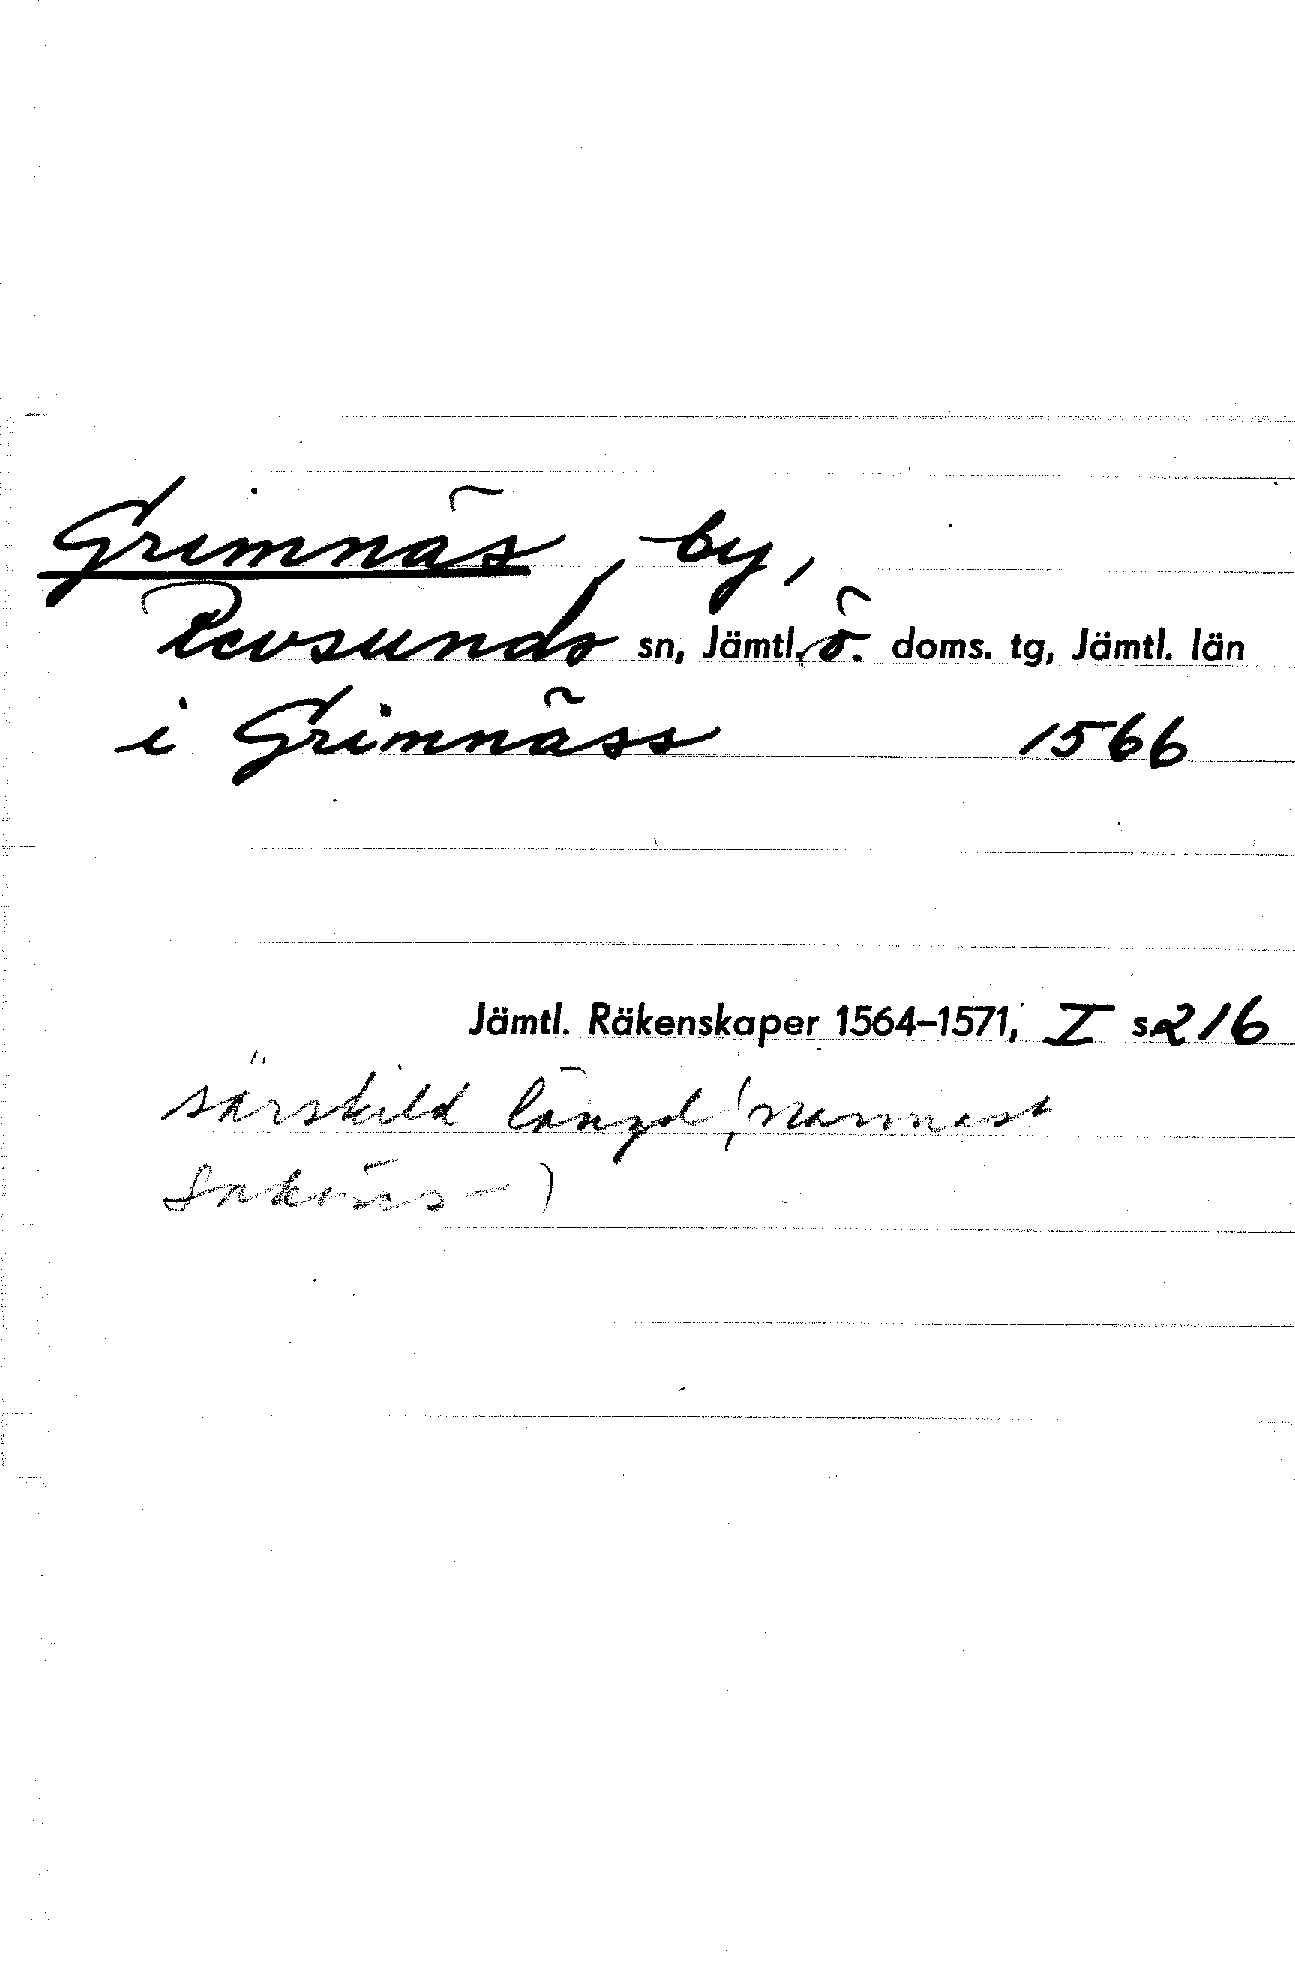 Grimnäs, by,
Revsunds sn, Jämtl. ö. doms. tg, Jämtl. län
i Grimnäss 1566
Jämtl. Räkenskaper 1564–1571, I s. 216
särskild längd, närmast
Saköres-)